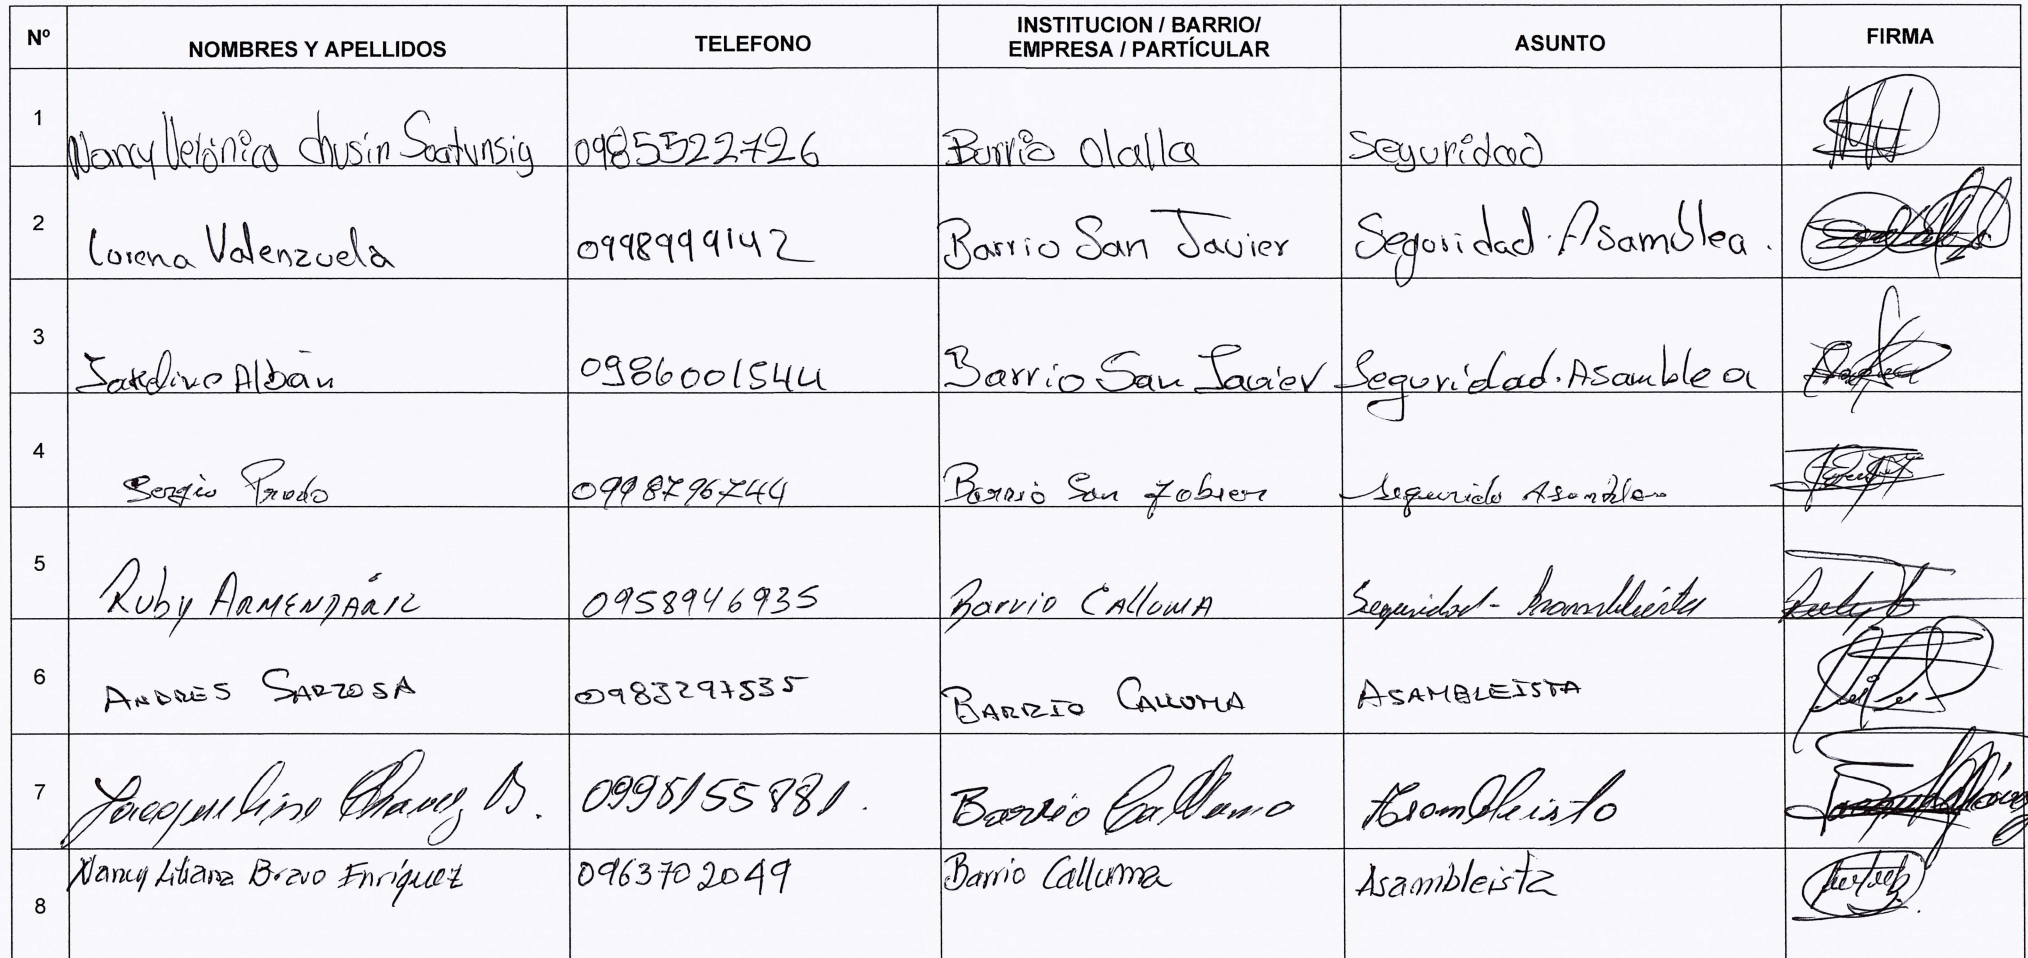 Nº NOMBRES Y APELLIDOS TELEFONO INSTITUCION / BARRIO/ EMPRESA / PARTÍCULAR ASUNTO FIRMA
1 Nancy Verónica chusin Soatunsig 0985522726 Barrio Olalla Seguridad
2 Lorena Valenzuela 0998999142 Barrio San Javier Seguridad. Asamblea.
3 Albán 0986001544 Barrio San Javier Seguridad. Asamblea
4 Sergio Prado 0998796744 Barrio San
5 Ruby ARMENDÁRIZ 0958946935 Barrio CAlluMA Seguridad -
6 ANDRES SARZOSA 0983297535 BARRIO CALLUMA ASAMBLEISTA
7 Jacqueline Chavez B. Barrio Calluma Asambleista
8 Nancy Liliana Bravo Enríquez 0963702049 Barrio Calluma Asambleista